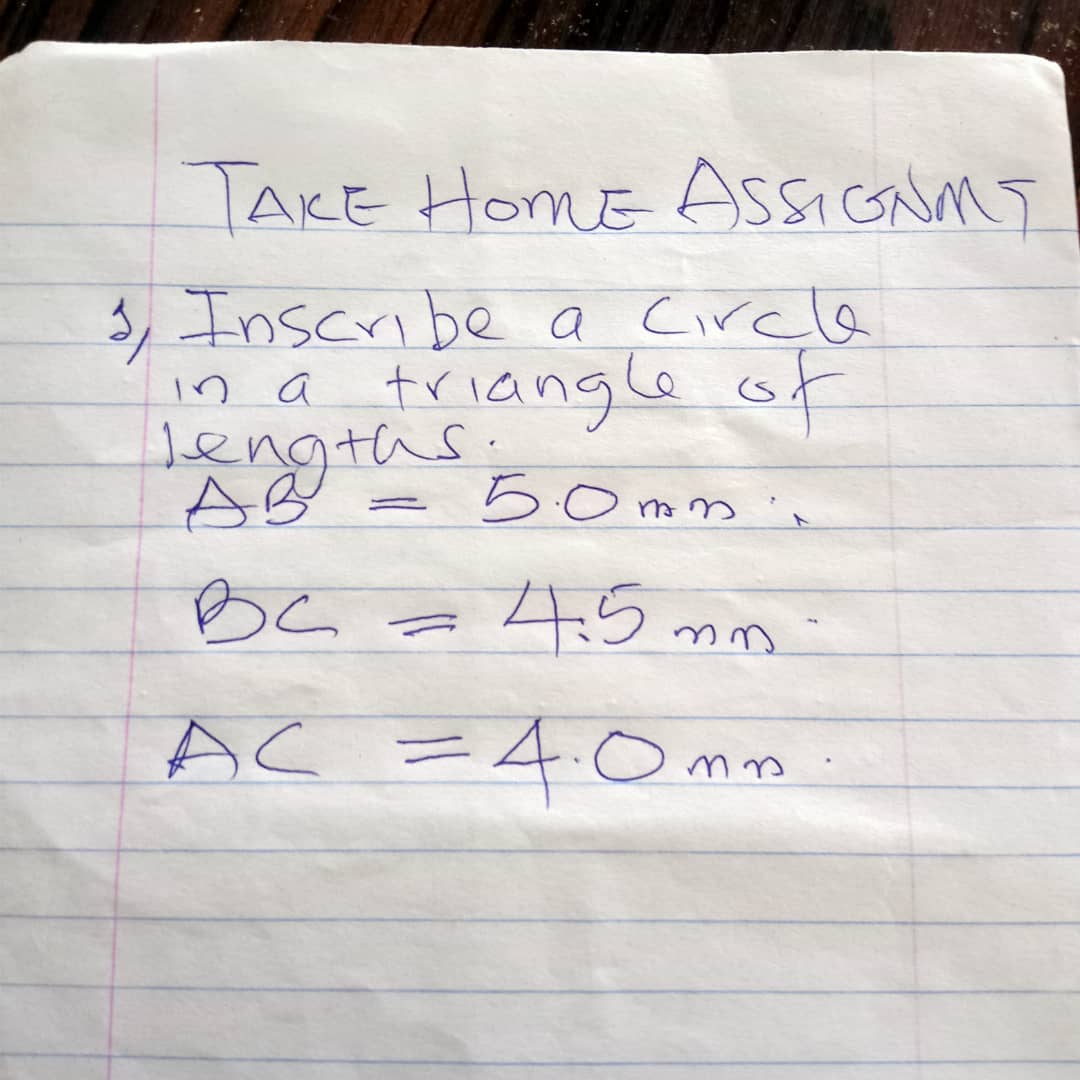 TAKE HOME ASSIGNMT
1, Inscribe a circle
in a triangle of
lengths.
AB = 5.0mm.
BC = 4.5mm.
AC = 4.0mm.